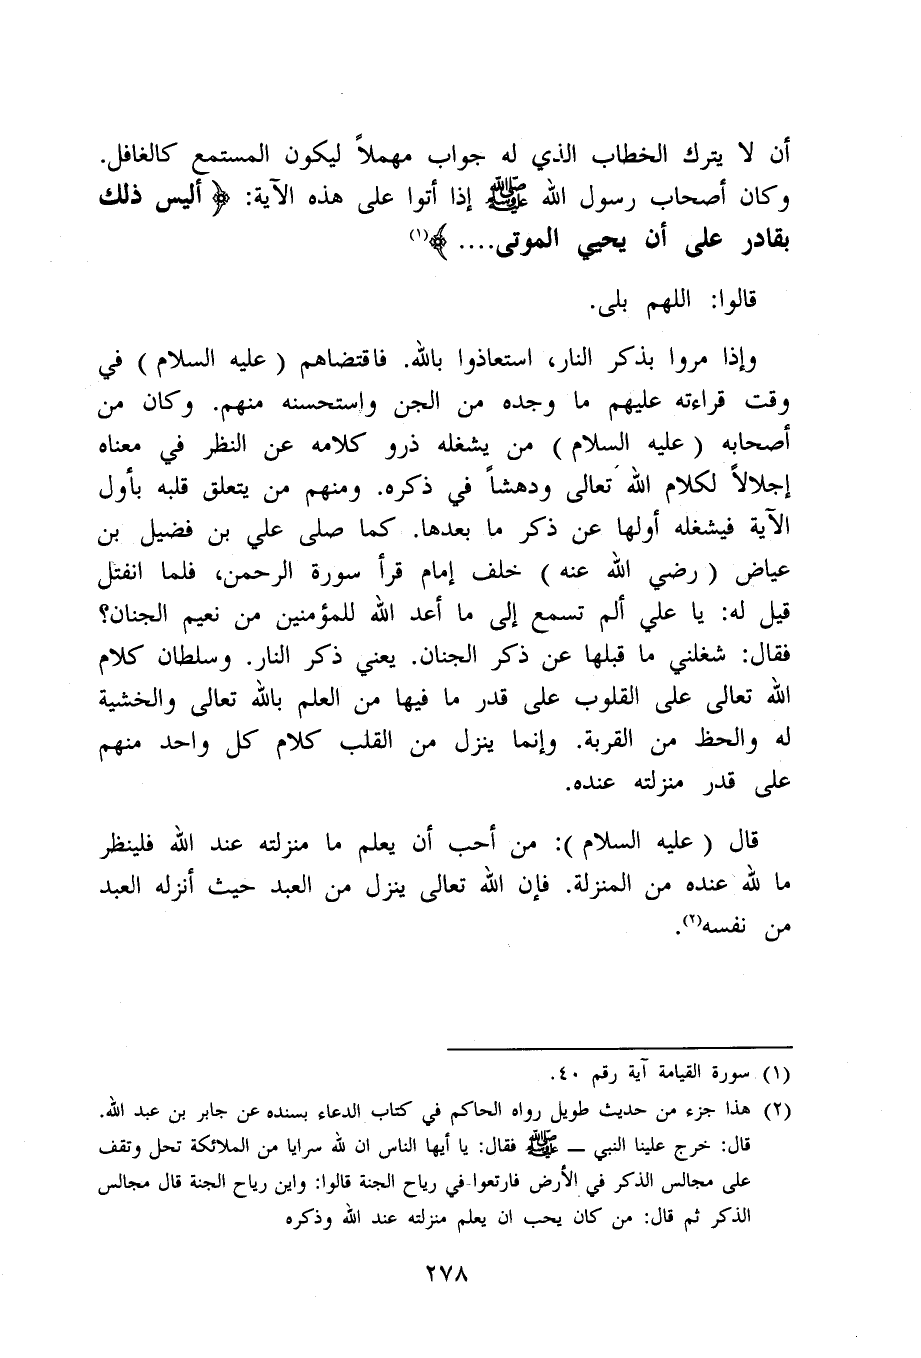 أن لا يترك الخطاب الذي له جواب مهملاً ليكون المستمع كالغافل.
وكان أصحاب رسول الله ﷺ إذا أتوا على هذه الآية: ﴿ أليس ذلك
بقادر على أن يحيي الموتى.... ﴾(١)
قالوا: اللهم بلى.
وإذا مروا بذكر النار، استعاذوا بالله. فاقتضاهم ( عليه السلام ) في
وقت قراءته عليهم ما وجده من الجن واستحسنه منهم. وكان من
أصحابه ( عليه السلام ) من يشغله ذرو كلامه عن النظر في معناه
إجلالاً لكلام الله تعالى ودهشاً في ذكره. ومنهم من يتعلق قلبه بأول
الآية فيشغله أولها عن ذكر ما بعدها. كما صلى علي بن فضيل بن
عياض ( رضي الله عنه ) خلف إمام قرأ سورة الرحمن، فلما انفتل
قيل له: يا علي ألم تسمع إلى ما أعد الله للمؤمنين من نعيم الجنان؟
فقال: شغلني ما قبلها عن ذكر الجنان. يعني ذكر النار. وسلطان كلام
الله تعالى على القلوب على قدر ما فيها من العلم بالله تعالى والخشية
له والحظ من القربة. وإنما ينزل من القلب كلام كل واحد منهم
على قدر منزلته عنده.
قال ( عليه السلام ): من أحب أن يعلم ما منزلته عند الله فلينظر
ما لله عنده من المنزلة. فإن الله تعالى ينزل من العبد حيث أنزله العبد
من نفسه(٢).
(١) سورة القيامة آية رقم ٤٠.
(٢) هذا جزء من حديث طويل رواه الحاكم في كتاب الدعاء بسنده عن جابر بن عبد الله.
قال: خرج علينا النبي ـ ﷺ فقال: يا أيها الناس ان لله سرايا من الملائكة تحل وتقف
على مجالس الذكر في الأرض فارتعوا في رياح الجنة قالوا: واين رياح الجنة قال مجالس
الذكر ثم قال: من كان يحب ان يعلم منزلته عند الله وذكره
٢٧٨